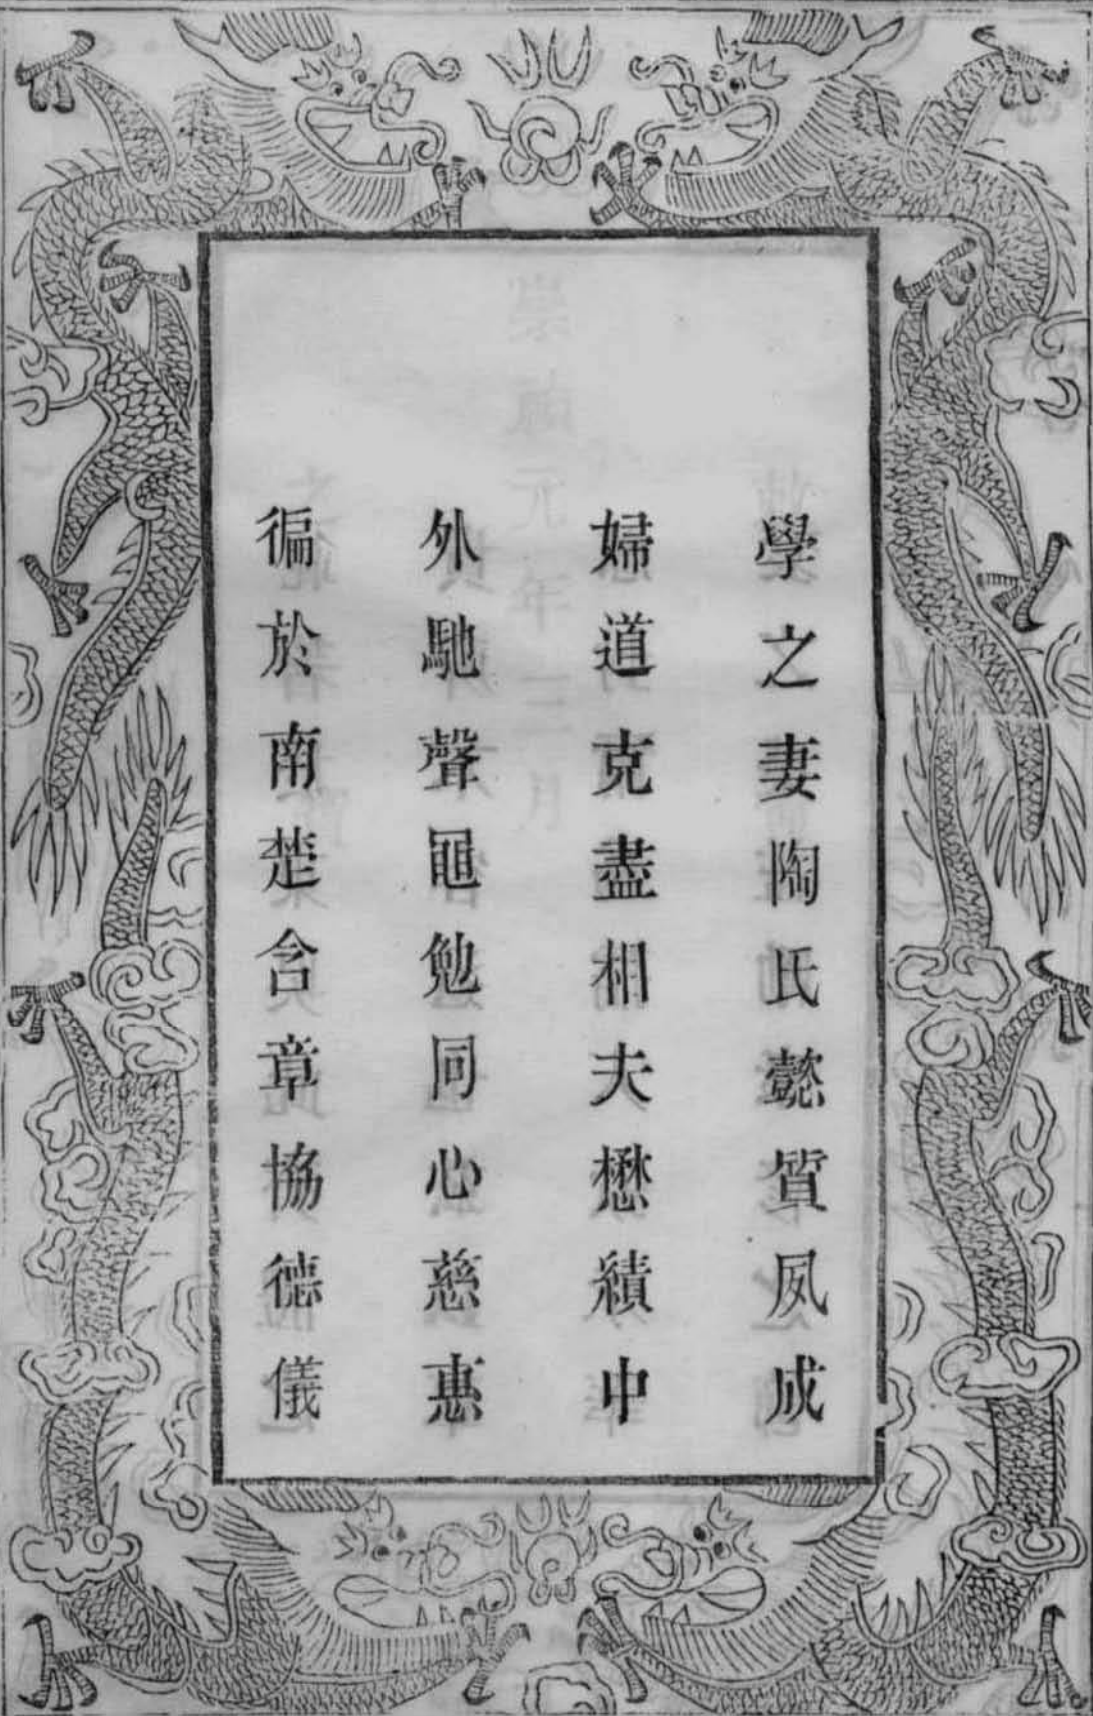 學之妻陶氏懿質夙成
婦道克盡相夫懋績中
外馳聲黽勉同心慈惠
徧於南楚含章協德儀